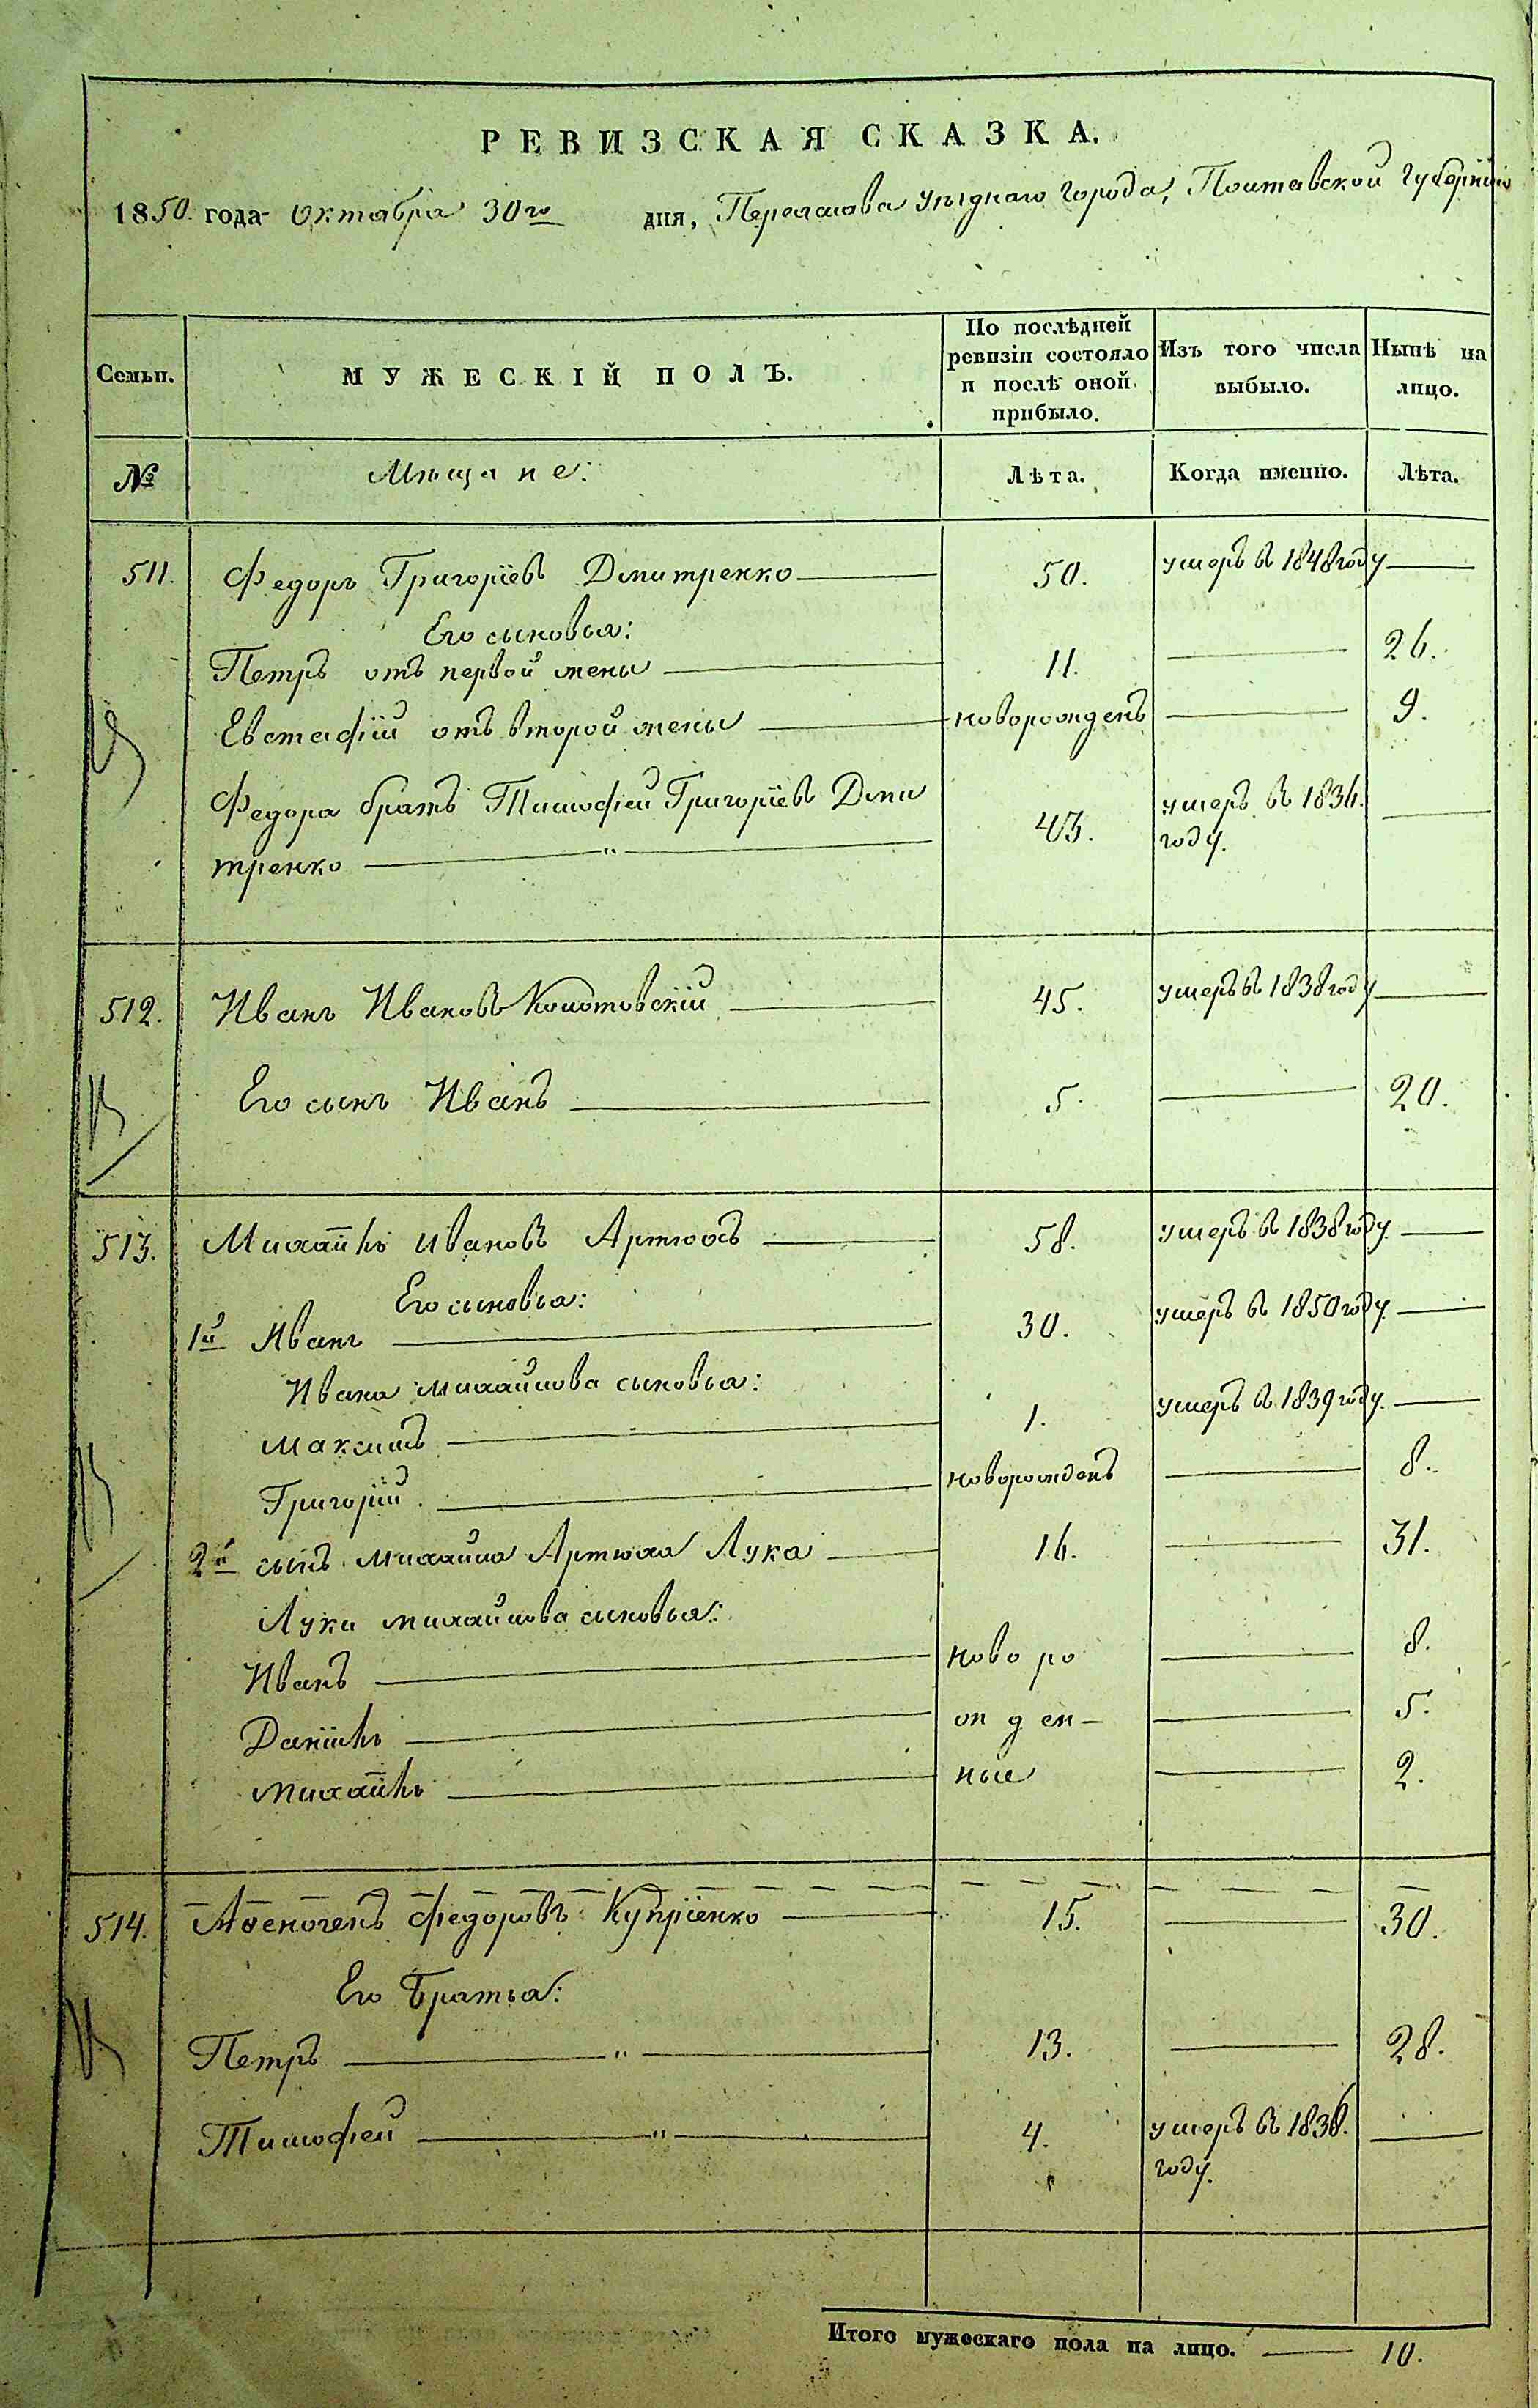 РЕВИЗСКАЯ СКАЗКА.
1850. года октября 30го дня, Переяслова уѣзднаго города, Полтавской Губерніи
Семьи. МУЖЕСКІЙ ПОЛЪ. По послѣдней ревизіи состояло и послѣ оной прибыло. Изъ того числа выбыло. Нынѣ на лицо.
№ Мѣщане: Лѣта. Когда именно. Лѣта.
511. Федоръ Григоріевъ Дмитренко 50. умеръ в 1848 году
Его сыновья:
Петръ отъ первой жены 11. 26.
Евстафій отъ второй жены новорожденъ 9.
Федора братъ Тимофей Григоріевъ Дми 43. умеръ в 1836.
тренко " году.
512. Иванъ Ивановъ Колотовскій 45. умеръ в 1838 году
Его сынъ Иванъ 5. 20.
513. Михаилъ Ивановъ Артюхъ 58. умеръ в 1838 году.
Его сыновья:
1й Иванъ 30. умеръ в 1850 году.
Ивана Михайлова сыновья:
Максимъ 1. умеръ в 1839 году.
Григорій новорожденъ 8.
2й сынъ Михайла Артюха Лука 16. 31.
Луки Михайлова сыновья:
Иванъ ново ро 8.
Даніилъ жден– 5.
Михаилъ ные 2.
514. Афеногенъ Федоровъ Купріенко 15. 30.
Его Братья:
Петръ " 13. 28.
Тимофей " 4. умеръ в 1838.
году.
Итого мужескаго пола на лицо. 10.